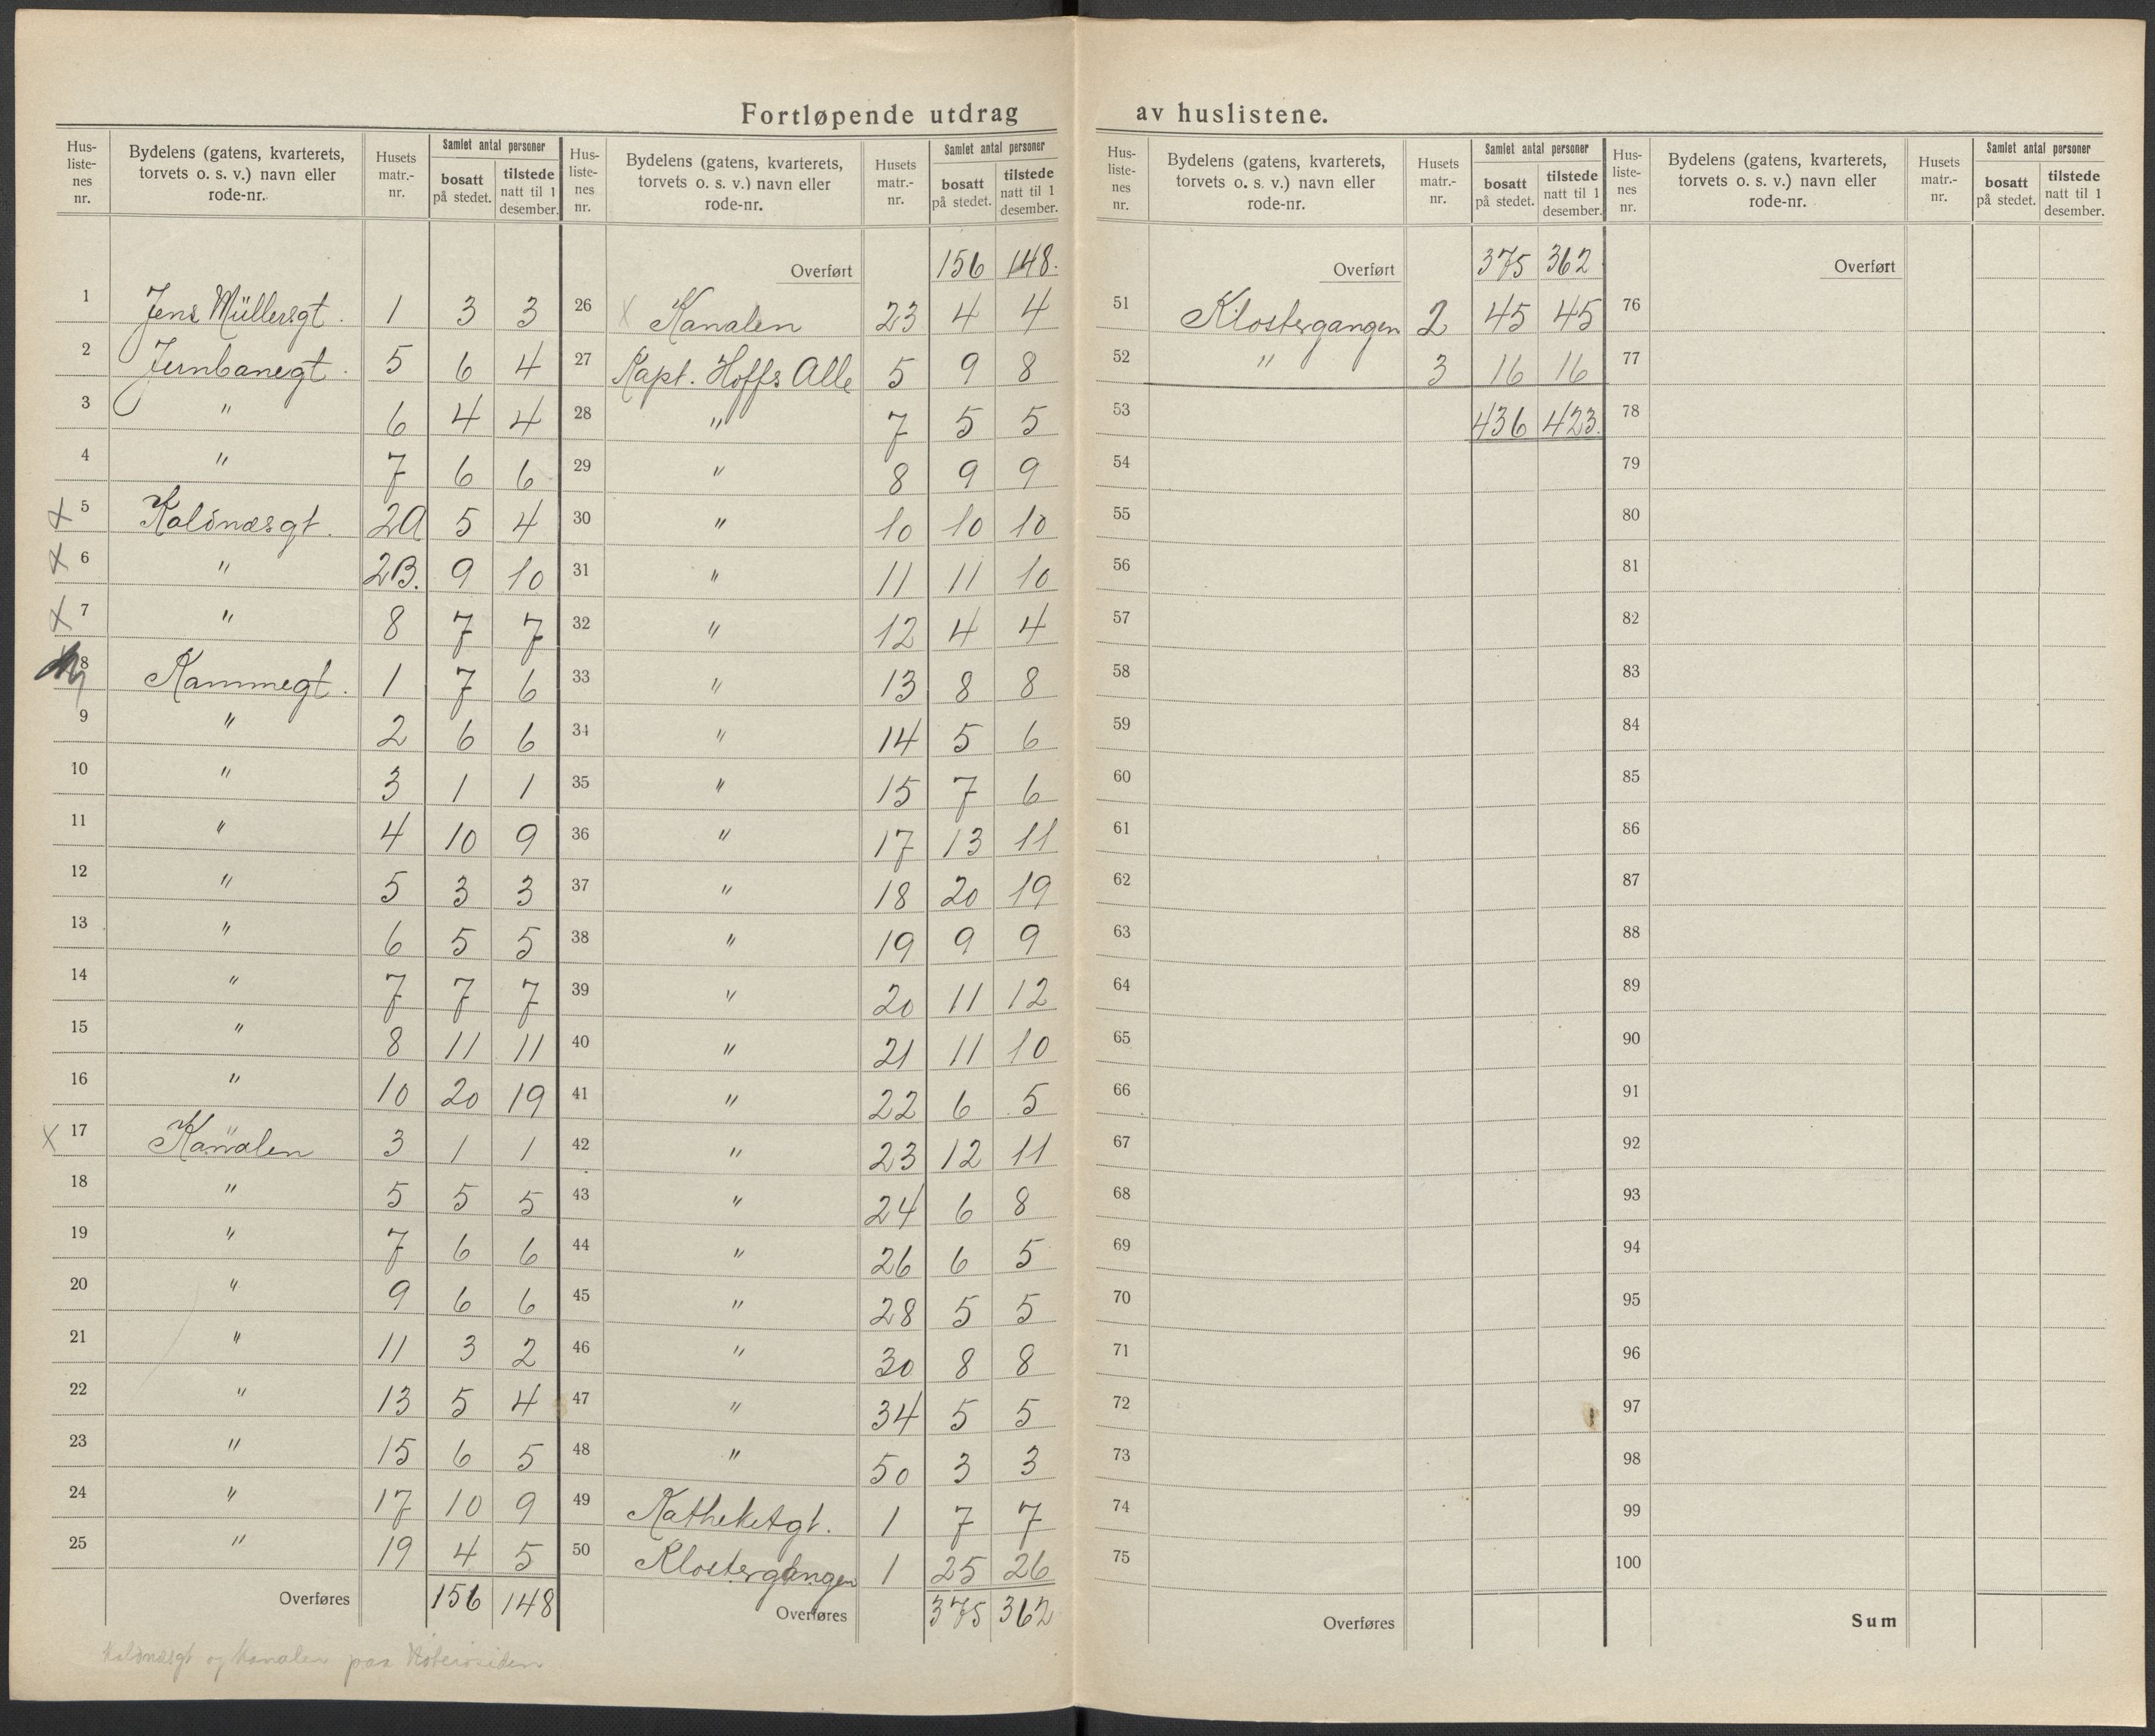 Fortløpende utdrag av huslistene.
Hus-
liste-
nes
nr.
Bydelens (gatens, kvarterets,
torvets o. s. v.) navn eller
rode-nr.
Husets
matr.-
nr.
Samlet antal personer
bosatt
på stedet.
tilstede
natt til 1
desember.
1 Jens Müllersgt. 1 3 3
2 Jernbanegt. 5 6 4
3 " 6 4 4
4 " 7 6 6
X 5 Kaldnæsgt. 2A 5 4
X 6 " 2B. 9 10
X 7 " 8 7 7
8 Kammegt. 1 7 6
9 " 2 6 6
10 " 3 1 1
11 " 4 10 9
12 " 5 3 3
13 " 6 5 5
14 " 7 7 7
15 " 8 11 11
16 " 10 20 19
X 17 Kanalen 3 1 1
18 " 5 5 5
19 " 7 6 6
20 " 9 6 6
21 " 11 3 2
22 " 13 5 4
23 " 15 6 5
24 " 17 10 9
25 " 19 4 5
Overføres 156 148
Kaldnæsgt og Kanalen paa
Hus-
liste-
nes
nr.
Bydelens (gatens, kvarterets,
torvets o. s. v.) navn eller
rode-nr.
Husets
matr.-
nr.
Samlet antal personer
bosatt
på stedet.
tilstede
natt til 1
desember.
Overført 156 148.
26 X Kanalen 23 4 4
27 Kapt. Hoffs Alle 5 9 8
28 " 7 5 5
29 " 8 9 9
30 " 10 10 10
31 " 11 11 10
32 " 12 4 4
33 " 13 8 8
34 " 14 5 6
35 " 15 7 6
36 " 17 13 11
37 " 18 20 19
38 " 19 9 9
39 " 20 11 12
40 " 21 11 10
41 " 22 6 5
42 " 23 12 11
43 " 24 6 8
44 " 26 6 5
45 " 28 5 5
46 " 30 8 8
47 " 34 5 5
48 " 50 3 3
49 Katheketgt. 1 7 7
50 Klostergangen 1 25 26
Overføres 375 362
Hus-
liste-
nes
nr.
Bydelens (gatens, kvarterets,
torvets o. s. v.) navn eller
rode-nr.
Husets
matr.-
nr.
Samlet antal personer
bosatt
på stedet.
tilstede
natt til 1
desember.
Overført 375 362
51 Klostergangen 2 45 45
52 " 3 16 16
53 436 423.
54
55
56
57
58
59
60
61
62
63
64
65
66
67
68
69
70
71
72
73
74
75
Overføres
Hus-
liste-
nes
nr.
Bydelens (gatens, kvarterets,
torvets o. s. v.) navn eller
rode-nr.
Husets
matr.-
nr.
Samlet antal personer
bosatt
på stedet.
tilstede
natt til 1
desember.
Overført
76
77
78
79
80
81
82
83
84
85
86
87
88
89
90
91
92
93
94
95
96
97
98
99
100
Sum